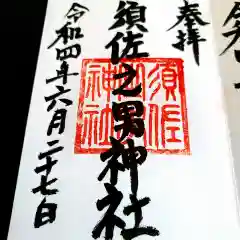 奉拝
須佐之男神社
須佐
神社
令和四年六月二十七日